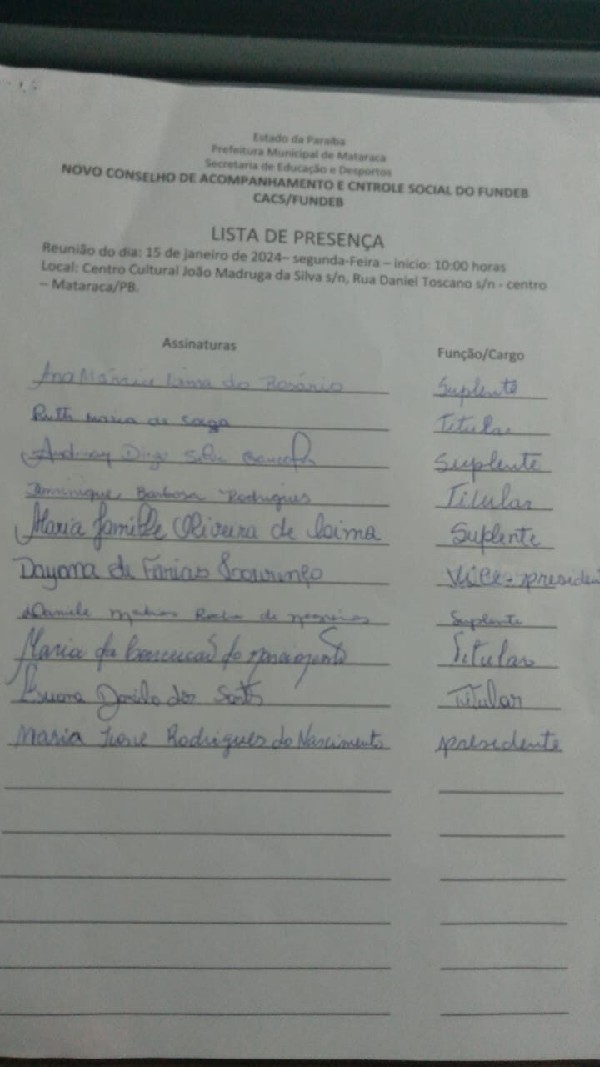 Estado da Paraíba
Prefeitura Municipal de Mataraca
Secretaria de Educação e Desportos
NOVO CONSELHO DE ACOMPANHAMENTO E CNTROLE SOCIAL DO FUNDEB
CACS/FUNDEB
LISTA DE PRESENÇA
Reunião do dia: 15 de janeiro de 2024– segunda-Feira – inicio: 10:00 horas
Local: Centro Cultural João Madruga da Silva s/n, Rua Daniel Toscano s/n - centro
– Mataraca/PB.
Assinaturas Função/Cargo
Ana Lima do Rosário Suplente
Ruth Maria de Titular
Diego Silva Suplente
Barbosa Rodrigues Titular
Maria Jamille Oliveira de Lima Suplente
Dayana de Farias Lourenço Vice-presiden
Daniele Rocha de Suplente
Maria da do Titular
Danilo dos Santos Titular
Maria Rodrigues do Nascimento presidente